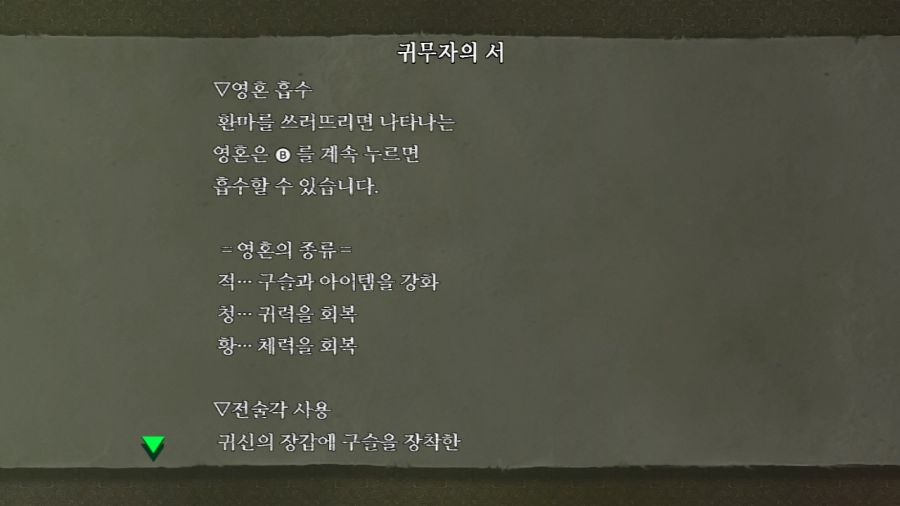 귀무자의 서
▽영혼 흡수
환마를 쓰러뜨리면 나타나는
영혼은 Ⓑ 를 계속 누르면
흡수할 수 있습니다.
=영혼의 종류=
적… 구슬과 아이템을 강화
청… 귀력을 회복
황… 체력을 회복
▽전술각 사용
귀신의 장갑에 구슬을 장착한